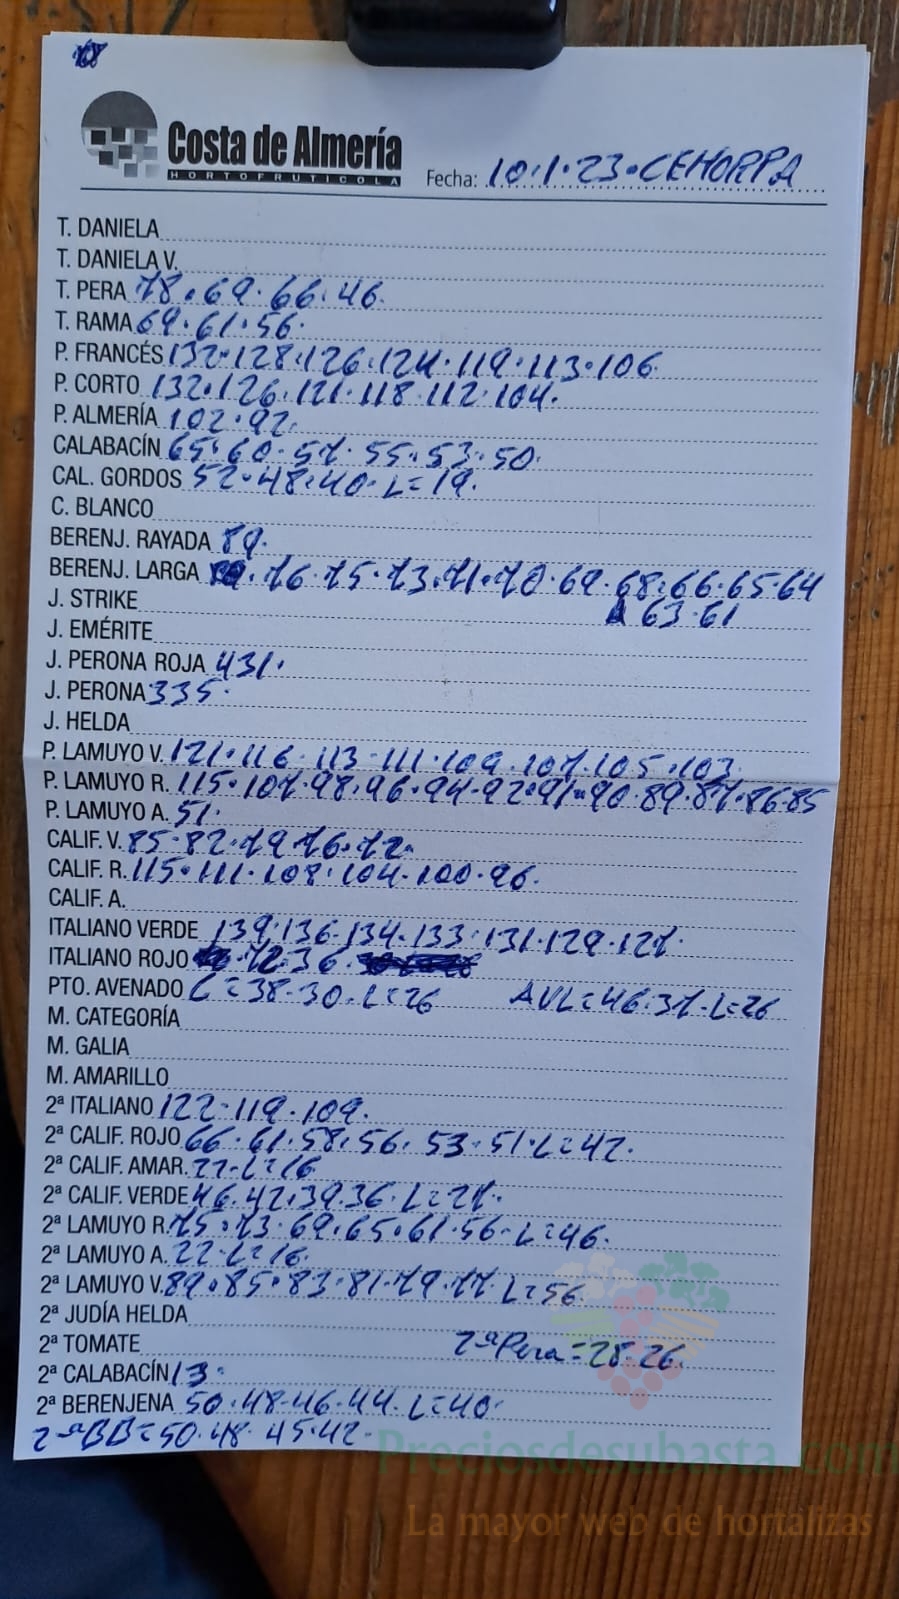 Costa de Almería
HORTOFRUTICOLA
Fecha: 10.1.23.CEHORPA
T. DANIELA
T. DANIELA V.
T. PERA 78.69.66.46.
T. RAMA 69.61.56.
P. FRANCÉS 132.128.126.124.119.113.106.
P. CORTO 132.126.121.118.112.104.
P. ALMERÍA 102.92.
CALABACÍN 65.60.57.55.53.50.
CAL. GORDOS 52.48.40.L=19.
C. BLANCO
BERENJ. RAYADA 89.
BERENJ. LARGA .76.75.73.71.70.69.68.66.65.64
63.61
J. STRIKE
J. EMÉRITE
J. PERONA ROJA 431.
J. PERONA 335.
J. HELDA
P. LAMUYO V. 121.116.113.111.109.107.105.103.
P. LAMUYO R. 115.107.98.96.94.92.91.90.89.87.86.85
P. LAMUYO A. 51.
CALIF. V. 85.82.79.76.72.
CALIF. R. 115.111.108.104.100.96.
CALIF. A.
ITALIANO VERDE 139.136.134.133.131.129.127.
ITALIANO ROJO .72.36.
PTO. AVENADO C=38.30.L=26 AVL=46.37.L=26
M. CATEGORÍA
M. GALIA
M. AMARILLO
2ª ITALIANO 122.119.109.
2ª CALIF. ROJO 66.61.58.56.53.51.L=42.
2ª CALIF. AMAR. 22.L=16
2ª CALIF. VERDE 46.42.39.36.L=27.
2ª LAMUYO R. 75.73.69.65.61.56.L=46.
2ª LAMUYO A. 22.L=16.
2ª LAMUYO V. 89.85.83.81.79.77.L=56
2ª JUDÍA HELDA
2ª TOMATE 2ªPera=28.26.
2ª CALABACÍN 13.
2ª BERENJENA 50.48.46.44.L=40.
2ªBB=50.48.45.42.
Preciosdesubasta.com
La mayor web de hortalizas